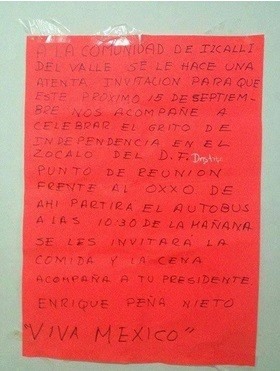 A LA COMUNIDAD DE IZCALLI
DEL VALLE SE LE HACE UNA
ATENTA INVITACION PARA QUE
ESTE PROXIMO 15 DE SEPTIEM-
BRE NOS ACOMPAÑE A
CELEBRAR EL GRITO DE
INDEPENDENCIA EN EL
ZOCALO DEL D.F.
PUNTO DE REUNION
FRENTE AL OXXO DE
AHI PARTIRA EL AUTOBUS
A LAS 10:30 DE LA MAÑANA
SE LES INVITARÁ LA
COMIDA Y LA CENA
ACOMPAÑA A TU PRESIDENTE
ENRIQUE PEÑA NIETO
"VIVA MEXICO"